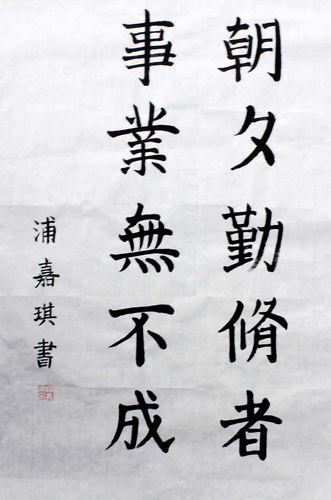 朝夕勤脩者
事業無不成
浦嘉琪書